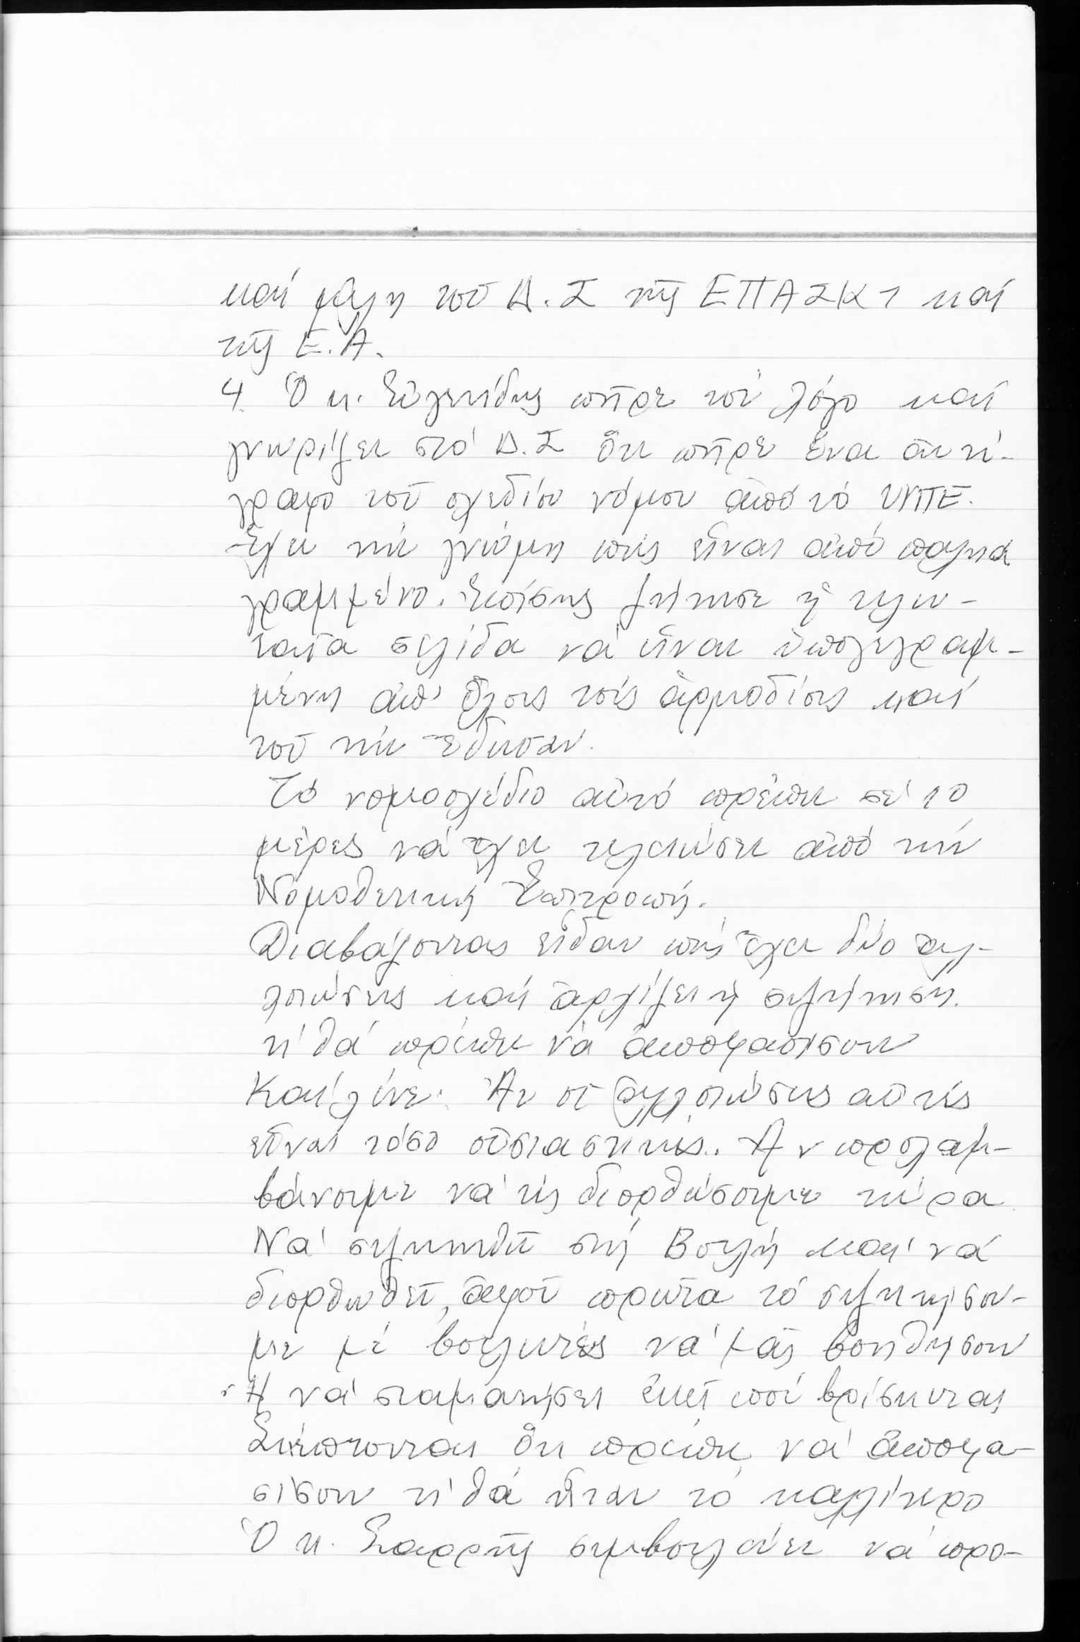 καί μέλη τοῦ Δ.Σ τῆς ΕΠΑΣΚΤ καί
τῆς Ε.Α.
4. Ὁ κ. Εὐγενίδης πῆρε τόν λόγο καί
γνωρίζει στό Δ.Σ ὅτι πῆρε ἕνα ἀντί-
γραφο τοῦ σχεδίου νόμου ἀπό τό ΥΠΠΕ.
Ἔχει τήν γνώμη πώς εἶναι ἀπό παλιά
γραμμένο. Ἐπίσης ζήτησε ἡ τελευ-
ταία σελίδα νά εἶναι ὑπογεγραμ-
μένη ἀπ' ὅλους τούς ἁρμοδίους καί
τοῦ τήν ἔδωσαν.
Τό νομοσχέδιο αὐτό πρέπει σέ 10
μέρες νά ἔχει τελειώσει ἀπό τήν
Νομοθετική Ἐπιτροπή.
Διαβάζοντας εἶδαν πώς ἔχει δύο ἀλ-
λοιώσεις καί ἀρχίζει ἡ συζήτηση.
τί θά πρέπει νά ἀποφασίσουν
Καί λένε. Ἄν οἱ ἀλλοιώσεις αὐτές
εἶναι τόσο οὐσιαστικές. Ἄν προλαμ-
βάνουμε νά τίς διορθώσουμε τώρα
Νά συζητηθεῖ στή Βουλή καί νά
διορθωθεῖ, ἀφοῦ πρῶτα τό συζητήσου-
με μέ βουλευτές νά μᾶς βοηθήσουν
Ἤ νά σταματήσει ἐκεῖ πού βρίσκεται
Σκέπτονται ὅτι πρέπει νά ἀποφα-
σίσουν τί θά ἦταν τό καλλίτερο
Ὁ κ. Σαρρῆς συμβουλεύει νά προ-